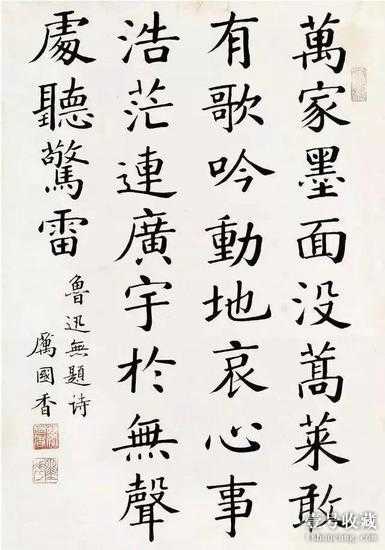 萬家墨面没蒿萊敢
有歌吟動地哀心事
浩茫連廣宇於無聲
處聽驚雷
魯迅無題诗
厲國香
壹号收藏
1shoucang.com